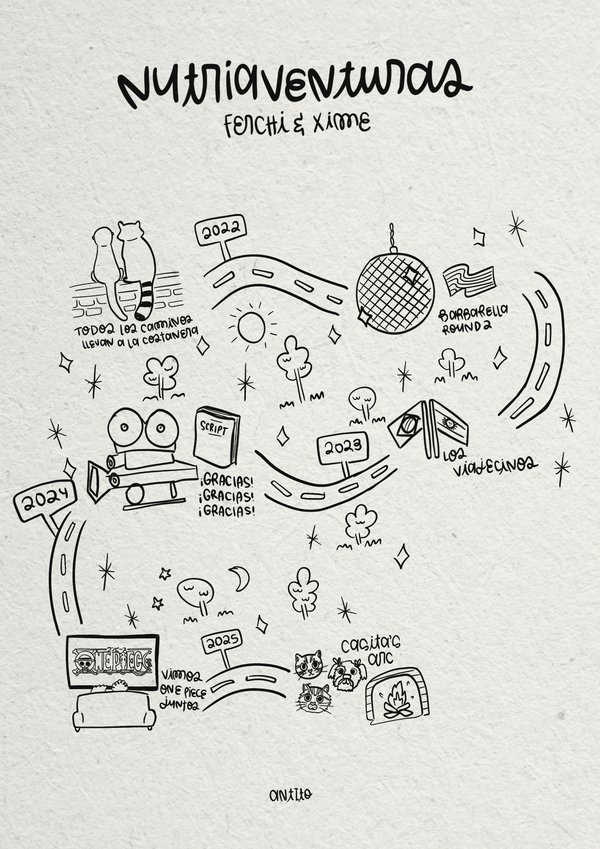 NUTRIAVENTURAS
FERCHI & XIME
2022
TODOS LOS CAMINOS
LLEVAN A LA COSTANERA
BARBARELLA
ROUND 2
SCRIPT
2023
LOS
VIAJECINOS
¡GRACIAS!
¡GRACIAS!
¡GRACIAS!
2024
ONE PIECE
VIMOS
ONE PIECE
JUNTOS
2025
CASITA'S
ARC
ANTITO